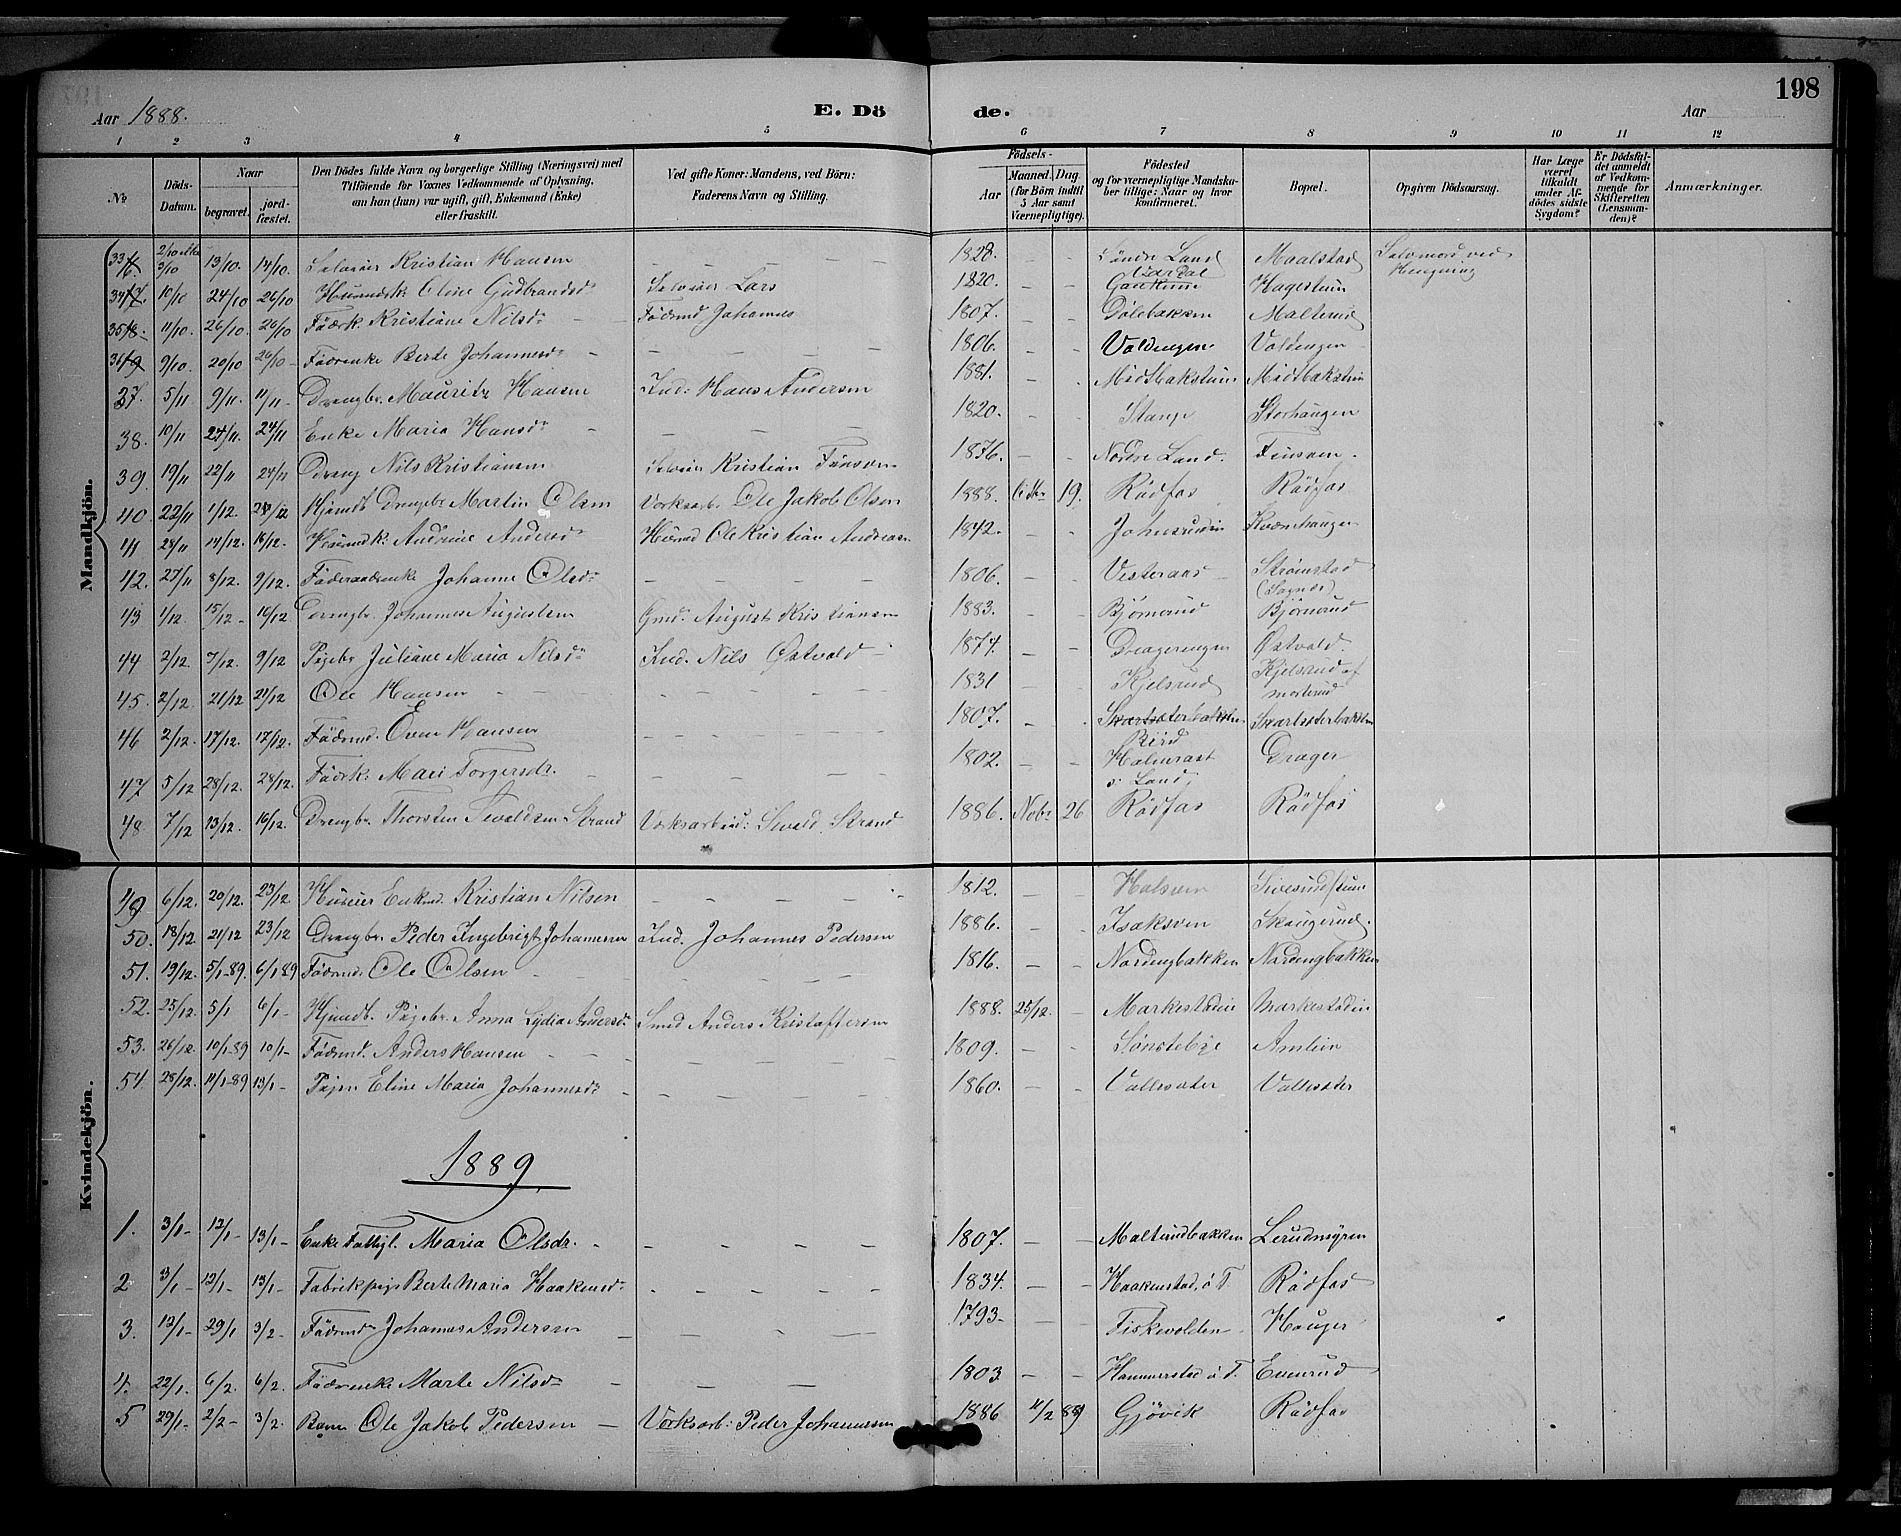 198
Aar 1888. E. Döde. Aar
1 2 3 4 5 6 7 8 9 10 11 12
№
Döds-Datum.
Naar
begravet. jordfæstet.
Den Dödes fulde Navn og borgerlige Stilling (Næringsvei) med
Tilföiende for Voxnes Vedkommende af Oplysning,
om han (han) var ugift, gift, Enkemand (Enke)
eller fraskilt.
Ved gifte Koner: Mandens, ved Börn:
Faderens Navn og Stilling.
Födsels-
Aar
Maaned. Dag.
(for Börn indtil
5 Aar samt
Værnepligtige).
Födested
og for værnepligtige Mandska-
ber tillige: Naar og hvor
konfirmeret.
Bopæl.
Opgiven Dödsaarsag.
Har Læge
været
tilkaldt
under Af-
dödes sidste
Sygdom?
Er Dödsfal-
det anmeldt
af Vedkom-
mende for
Skifteretten
(Lensman-
den)?
Anmærkninger.
Mandkjön.
33 2/10 3/10 13/10. 14/10. Selveier Kristian Hansen 1828. – – Søndre Land Maalstad Selvmord ved Hengning
34 10/10 24/10 26/10 Huusmdsk. Eline Gudbrandsd: Selveier Lars 1820. – – Vardal Hagestuen
35 11/10. 26/10. 26/10 Födrk. Kristiane Nilsd: Födrmd Johannes 1807. – – Dölebakken Malterud
36 9/10 20/10 26/10 Födrenke Berte Johannesd: 1806. – – Voldengen Voldengen
37. 5/11 9/11. 11/11 Drengbr. Mauritz Hansen Ind: Hans Andersen 1881. – – Midtbakstuen Midtbakstuen
38. 10/11 24/11. 24/11 Enke Maria Hansd: 1820. – – Stange Storhaugen
39. 19/11 22/11 24/11 Dreng Nils Kristiansen Selveier Kristian 1876. – – Nordre Land.
40 22/11 1/12. Hjemdt. Drengbr. Martin Olsen Værksarb. Ole Jakob Olsen 1888. 19. Rödfos Rödfos
41 24/11 14/12. 16/12. Huusmdk. Andrine Andersd: Huusmd Ole Kristian Andreasen 1842. – – Johnsrudin Kværnhaugen
42. 27/11 8/12. 9/12. Föderaadsenke Johanne Olsd: 1806. – – Vesteraas Strømstad
43 1/12 15/12 16/12 Drengbr. Johannes Augustsen Gmd. August Kristiansen 1883. – – Bjørnerud Bjørnerud
44 2/12. 7/12. 9/12 Pigebr. Juliane Maria Nilsd: Ind. Nils Østvold 1874. – – Drageringen Østvold.
45. 2/12. 21/12 21/12 Ole Hansen 1831 Kjelsrud Kjelsrud af
46 2/12. 17/12. 17/12. Födrmd. Even Hansen 1807. – Skartsæterbakken Biri Skartsæterbakken
47 5/12 28/12. 28/12. Födrk. Mari Torgersdr. 1802. – – s. Land, Drager
48 7/12 13/12. 16/12. Drengbr. Thorsten Sivaldsen Strand Værksarbeid: Sivald Strand 1886. Nobr. 26 Rödfos Rödfos
Kvindekjön.
49 6/12. 20/12. 23/12. Enkmd. Kristian Nilsen 1812. – – Sivesindstuen
50. 18/12. 21/12 23/12 Drengbr. Peder Ingebrigt Johannesen Ind. Johannes Pedersen 1886. – – Isaksveen Skougerud.
51. 19/12. 5/1-89. 6/1 89 Födrmd. Ole Olsen 1816. – – Nordengbakken Nordengbakken
52. 25/12. 5/1 6/1 – Hjemdt. Pigebr. Anna Lydia Andersd: Smed Anders Kristoffersen 1888. 25/12. – Markestadin Markestadin
53. 26/12. 10/1-89 10/1- Födrmd. Anders Hansen 1809. – – Sønsteby Amlien
54 28/12. 11/1-89 13/1 – Pigen Eline Maria Johannesd: 1860. – – Vallesæter Vallesæter
1889
1. 3/1- 12/1- 13/1- Enke Fattigl. Maria Olsdr. 1807. – – Malterudbakken Lerudmyren
2 3/1- 12/1- 13/1- Fabrikpige Berte Maria Haakensd: 1834. – – Haakenstad, ö T. Rödfos
3. 12/1- 29/1 3/2- Födrmd. Johannes Andersen 1793- – – Fiskevolden Houger
4. 22/1. 6/2. 6/2. Födrenke Marte Nilsd: 1803 – – Hammerstad ö. T. Einerud
5 29/1- 2/2- 3/2. Barn Ole Jakob Pedersen – Værksarb: Peder Johannesen 1886 Gjövik Rödfos